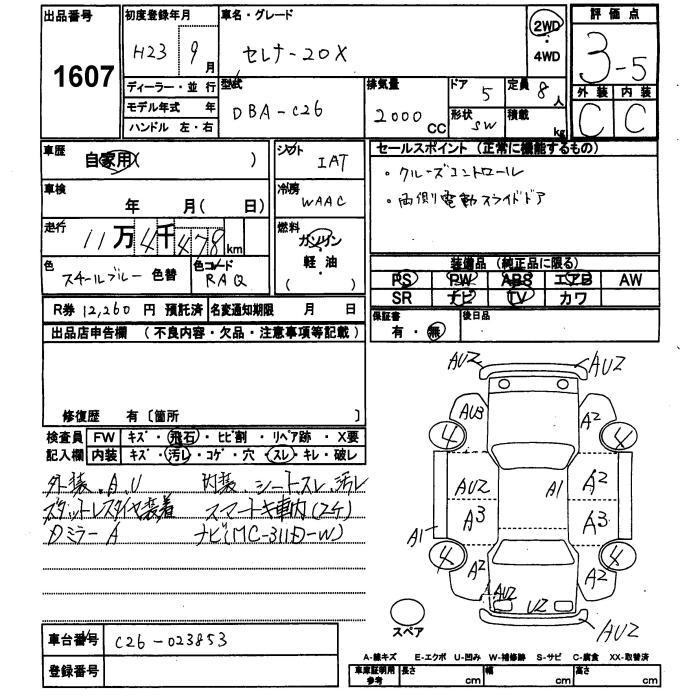 出品番号 初度登録年月 車名・グレード 2WD 評価点
1607 H23 9月 セレナ-20X 4WD 3-5
ディーラー・並行 型式 排気量 ドア 定員 外装 内装
モデル年式 年 DBA-C26 2000 CC 5 8人 C C
ハンドル 左・右 形状 SW 積載 kg
車歴 自家用( ) シフト IAT セールスポイント(正常に機能するもの)
・クルーズコントロール
車検 年 月( 日) 冷房 WAAC ・両側電動スライドドア
走行 11万4千478km 燃料 ガソリン
軽・油
( )
色 スチールブルー 色替 色コード RAQ
装備品(純正品に限る)
PS PW ABS エアB AW
SR ナビ TV カワ
R券 12,260円 預託済 名変通知期限 月 日 保証書 有・無 後日品
出品店申告欄(不良内容・欠品・注意事項等記載)
修復歴 有〔箇所 〕
検査員 FW キズ・飛石・ヒビ割・リペア跡・X要
記入欄 内装 キズ・汚レ・コゲ・穴・スレ・キレ・破レ
外装.A.U 内装.シートスレ.汚レ
スタットレスタイヤ装着 スマートキ車内(2ケ)
ミラーA ナビ(MC-311D-W)
AUZ AUZ
AUB A2
4 4
AUZ A1 A2
A3 A3
A1
4 4
A2 A2
AUZ UZ
AUZ
スペア
車台番号 C26-023853
登録番号
A-線キズ E-エクボ U-凹み W-補修跡 S-サビ C-腐食 XX-取替済
車庫証明用参考 長さ cm 幅 cm 高さ cm